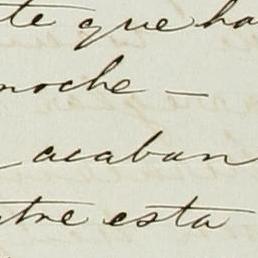 te que ha
noche —
acaban
tre esta